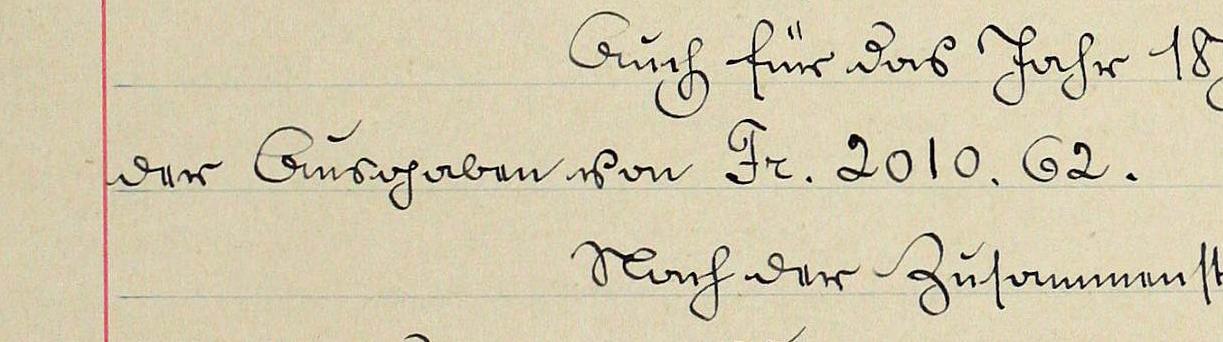 Auch für das Jahr 18
der Ausgaben von Fr. 2010. 62.
Nach der Zusammenst